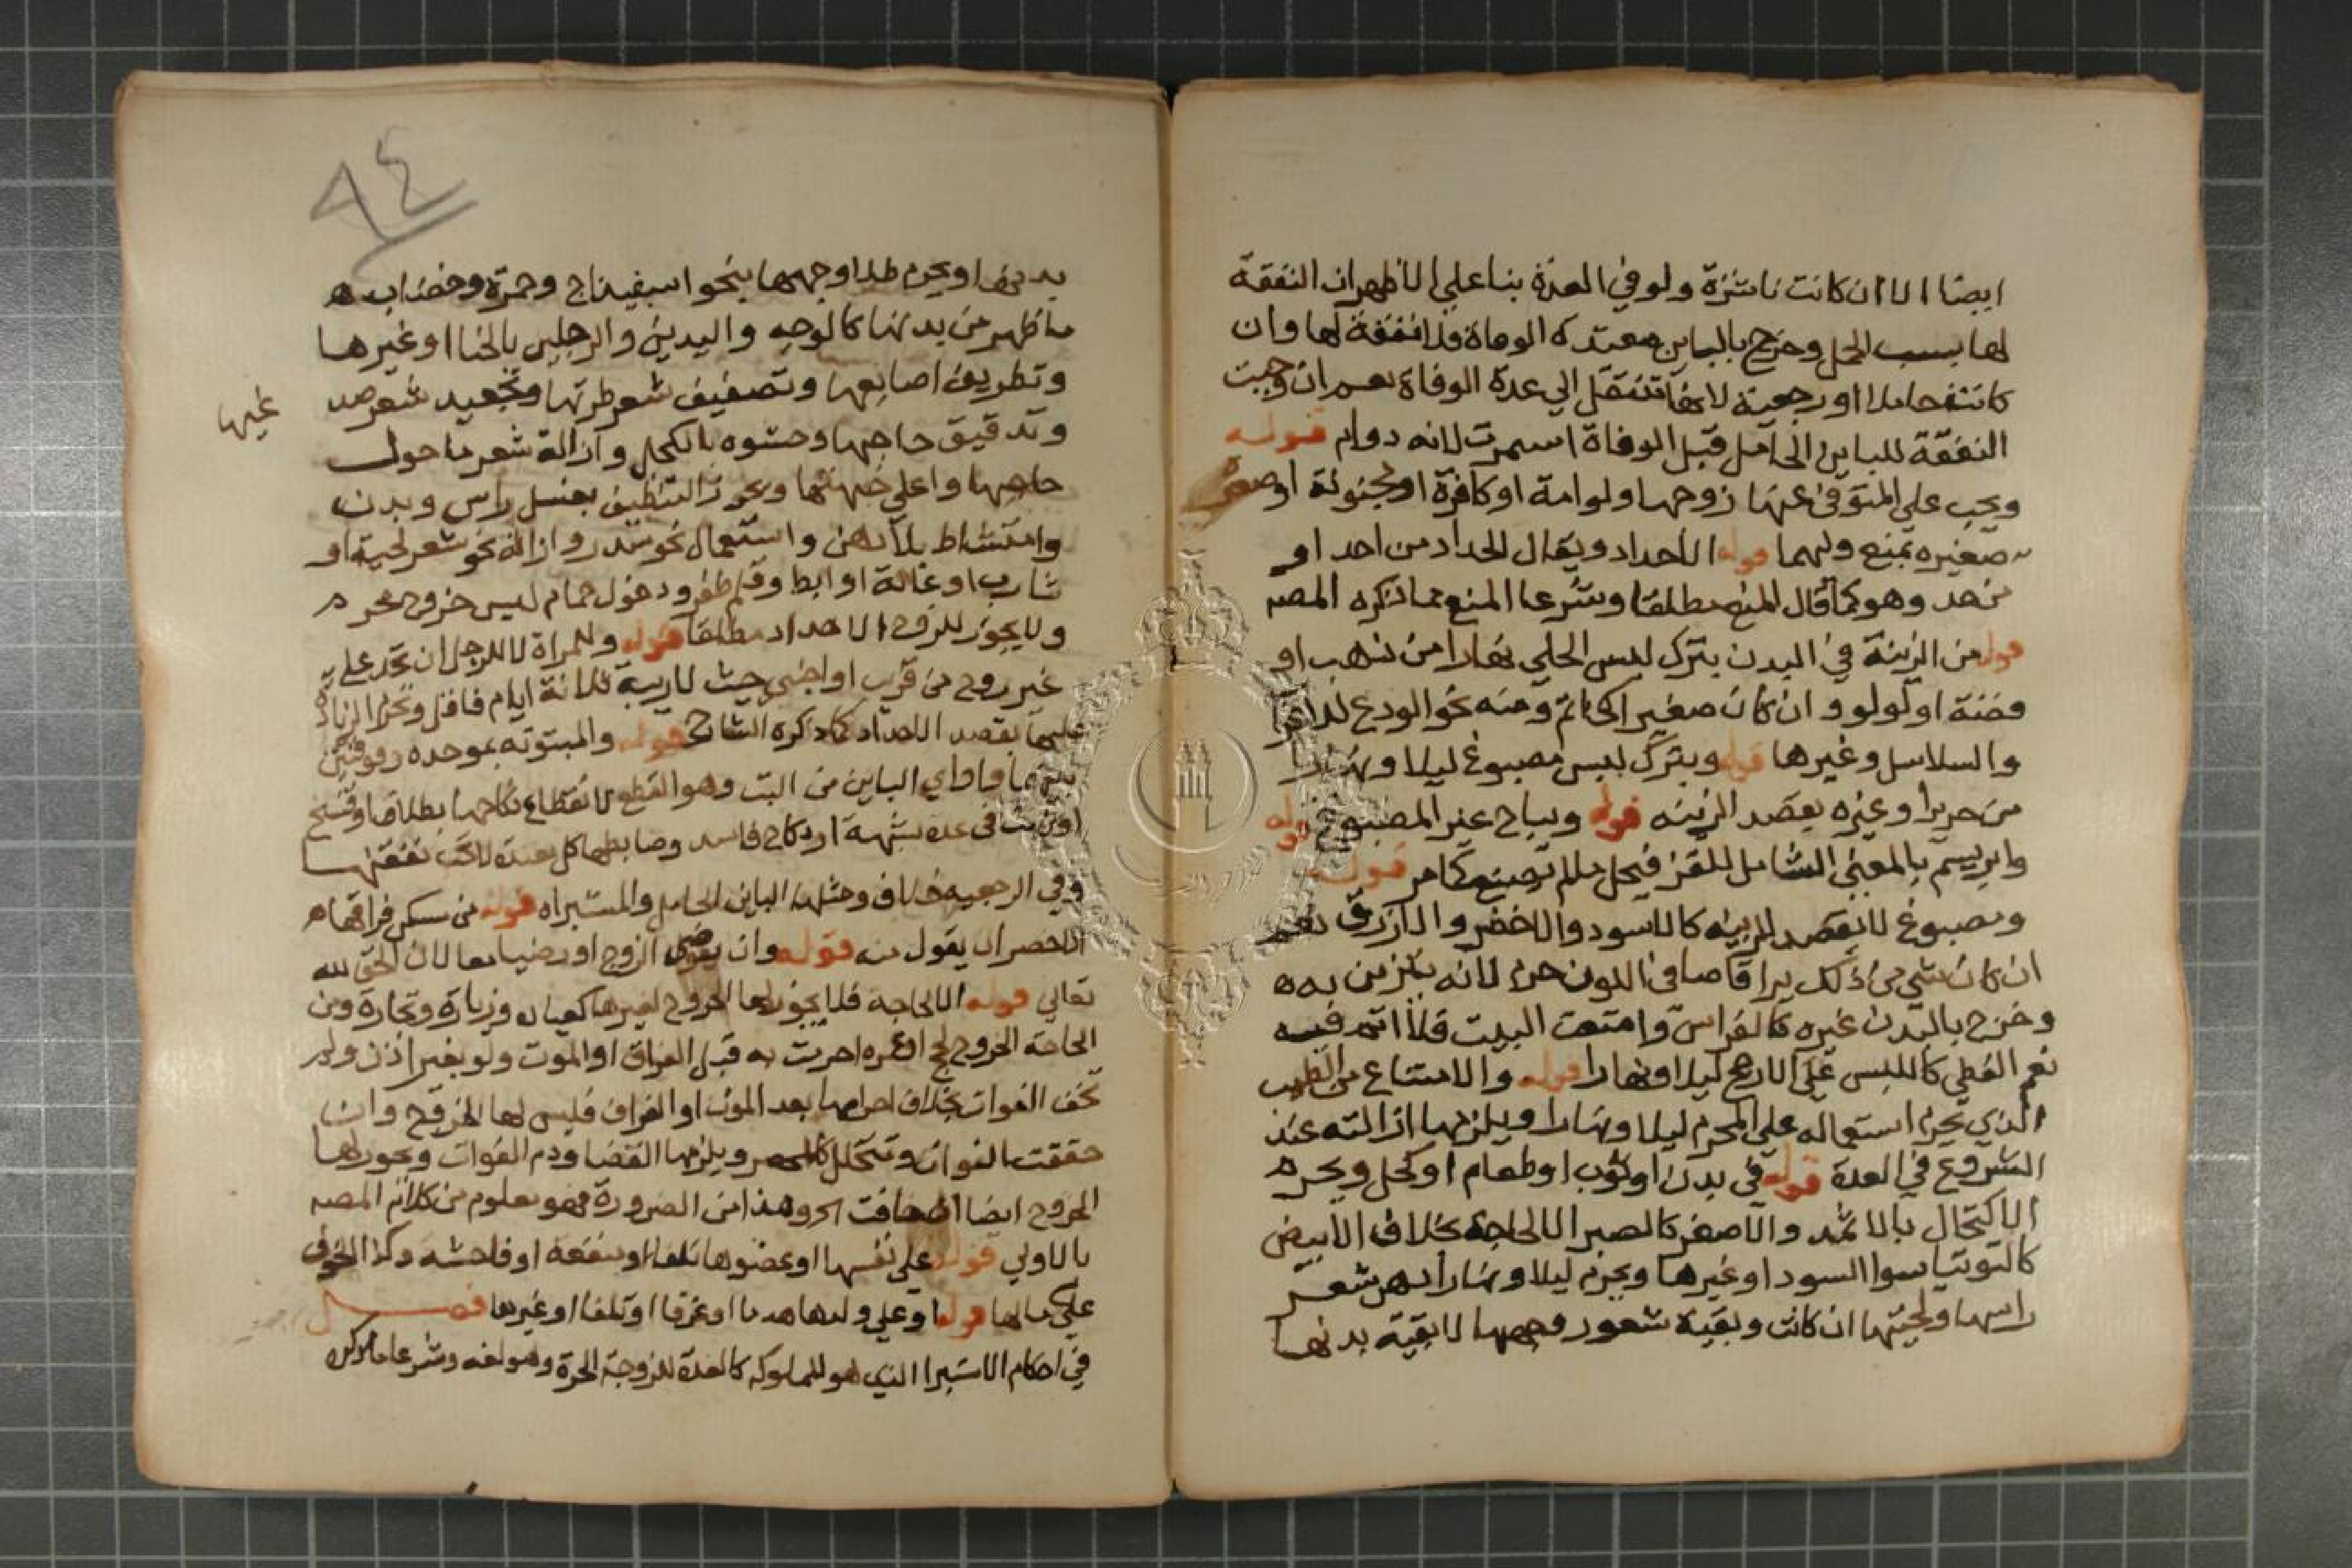 ايضا الا ان كانت ناشزة ولو في العدة بنا علي الاظهر ان النفقة
لها بسبب الحمل وخرج بالباين معتدة الوفاة فلا نفقة لها وان
كانت حاملا او رجعية لانها تنتقل الي عدة الوفاة نعم ان وجبت
النفقة للباين الحامل قبل الوفاة استمرت لانه دوام قوله
ويجب علي المتوفي عنها زوجها ولو امة او كافرة او مجنونة او صغيرة
صغيره بمنع وليهما قوله الاحداد ويقال الحداد من احد او
من حد وهو كما قال المنع مطلقا وشرعا المنع مما ذكره المصه
قوله من الزينة في البدن بترك لبس الحلي نهارا من ذهب او
وفضة او لولو و ان كان صغيرا كخاتم ومنه نحو الودع
والسلاسل وغيرها قوله وبترك لبس مصبوغ ليلا ونهارا
من حرير او غيره بقصد الزينه قوله ويباح غير المصبوغ قوله
وابريسم بالمعني الشامل للقز فيحل ما لم يصبغ كما مر قوله
ومصبوغ لا يقصد للزينه كالاسود والاخضر والازرق نعم
ان كان شي من ذلك براقا صافي اللون حرم لانه يتزين به ه
وخرج بالبدن غيره كالفراش وامتعت البيت فلا اثم فيه
نعم الغطي كاللبس علي الارجح ليلا ونهارا قوله والامتناع من الطيب
الذي يحرم استعماله علي المحرم ليلا ونهارا ويلزمها ازالته عند
الشروع في العدة قوله في بدن او ثوب او طعام او كحل ويحرم
الاكتحال بالاثمد والاصفر كالصبر الا لحاجة بخلاف الابيض
كالتوتيا سوا السودا وغيرها ويحرم ليلا ونهارا دهن شعر
راسها ولحيتها ان كانت وبقية شعور وجهها لا بقية بدنها
٨٤
بدنها ويحرم طلا وجهها بنحو اسفيذاج وحمرة وخضاب ه
ما ظهر من بدنها كالوجه واليدين والرجلين بالحنا او غيرها
وتطريف اصابعها وتصفيف شعر طرتها وتجعيد شعر صد
غيها
وتدقيق حاجبها وحشوه بالكحل وازالة شعر ما حول
حاجبها واعلي جبهتها ويجوز التنظيف بغسل راس وبدن
وامتشاط بلا دهن واستعمال نحو سدر وازالة نحو شعر لحية او
شارب او عانة او ابط وقلم ظفر ودخول حمام ليس خروج محرم
ولا يجوز للزوج الاحداد مطلقا قوله وللمراة لا للرجل ان تحد علي
غير زوج من قريب او اجنبي حيث لا ريبة ثلاثة ايام فاقل وتحرم الزيادة
عليها بقصد الاحداد كما ذكره الشارح قوله والمبتوته بموحده وفوقيتين
بينهما واو اي الباين من البت وهو القطع لانقطاع نكاحها بطلاق او فسخ
او في عدة شبهة او نكاح فاسد وضابطها كل معتدة لا تجب نفقتها
وفي الرجعيه خلاف ومثلها الباين الحامل والمستبراه قوله من مسكن فراقها ه
الاحصر ان يقول منه قوله وان رضي الزوج او رضيا معا لان الحق لله
تعالي قوله الا لحاجة فلا يجوز لها الخروج لغيرها كعيادة وزيارة وتجارة ومن
الحاجة الخروج لحج او عمره احرمت به قبل الفراق او الموت ولو بغير اذن ولم
تخف الفوات بخلاف احرامها بعد الموت او الفراق فليس لها الخروج وان
حققت الفوات وتتحلل كالمحصر ويلزمها القضا ودم الفوات ويجوز لها
الخروج ايضا ان خافت وهذا من الضرورة فهو معلوم من كلام المصه
بالاولي قوله علي نفسها او عضوها تلفا او منفعة او فاحشة وكذا الخوف
علي مالها قوله وعلي ولدها هدما او غرقا او تلفا او غيرها فصل
في احكام الاستبرا الذي هو للمملوكه كالعدة للزوجة الحرة وهو لغه وشرعا ما ذكره